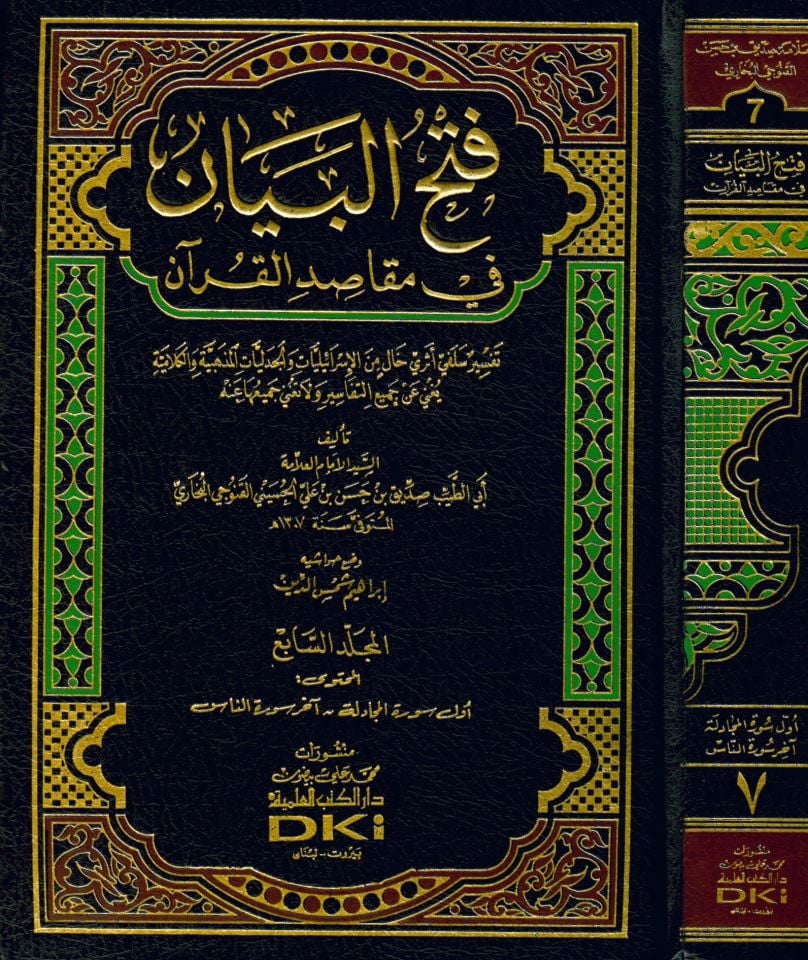 فَتْحُ البَيَان
في مقاصِدِ القُرآن
تفسير سلفي أثري خال من الإسرائيليات والجدليات المذهبية والكلامية
يغني عن جميع التفاسير ولا تغني جميعها عنه
تأليف
السيد الإمام العلامة
أبي الطيب صديق بن حسن بن علي الحسيني القنوجي البخاري
المتوفى سنة ١٣٠٧ هـ
وضع حواشيه
إبراهيم شمس الدين
المجلد السابع
المحتوى:
أول سورة المجادلة - آخر سورة الناس
منشورات
محمد علي بيضون
دار الكتب العلمية
DKi
بيروت - لبنان
العلامة صديق بن حسن
القنوجي البخاري
7
فتح البيان
في مقاصد القرآن
أول سورة المجادلة
آخر سورة الناس
٧
منشورات
محمد علي بيضون
دار الكتب العلمية
DKi
بيروت - لبنان